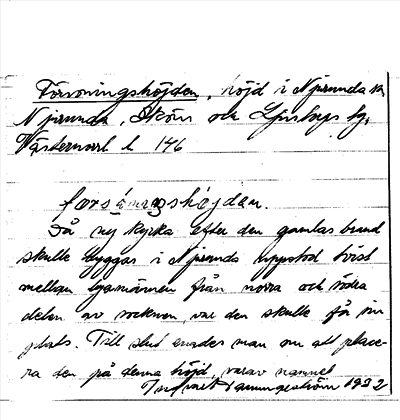 Försoningshöjden, höjd i Njurunda sn,
Njurunda, Sköns och Ljustorps tg,
Västernorrl. l. 146
forsóningshöjdan.
Då ny kyrka efter den gamlas brand
skulle byggas i Njurunda uppstod tvist
mellan byamännen från norra och södra
delen av socknen, var den skulle få sin
plats. Till slut enades man om att place-
ra den på denna höjd, varav namnet
1932